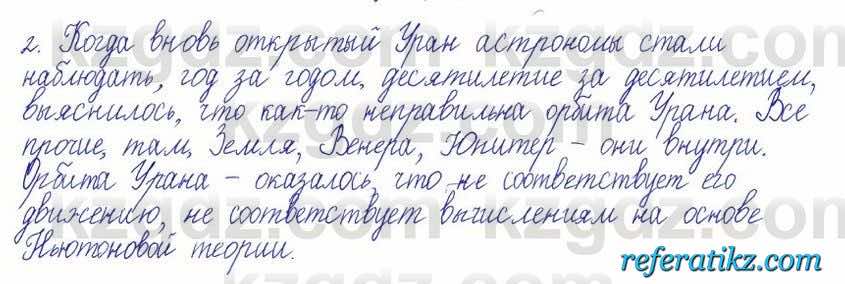 2. Когда вновь открытый Уран астрономы стали
наблюдать, год за годом, десятилетие за десятилетием,
выяснилось, что как-то неправильна орбита Урана. Все
прочие, там, Земля, Венера, Юпитер - они внутри.
Орбита Урана - оказалось, что не соответствует его
движению, не соответствует вычислениям на основе
Ньютоновой теории.
referatikz.com